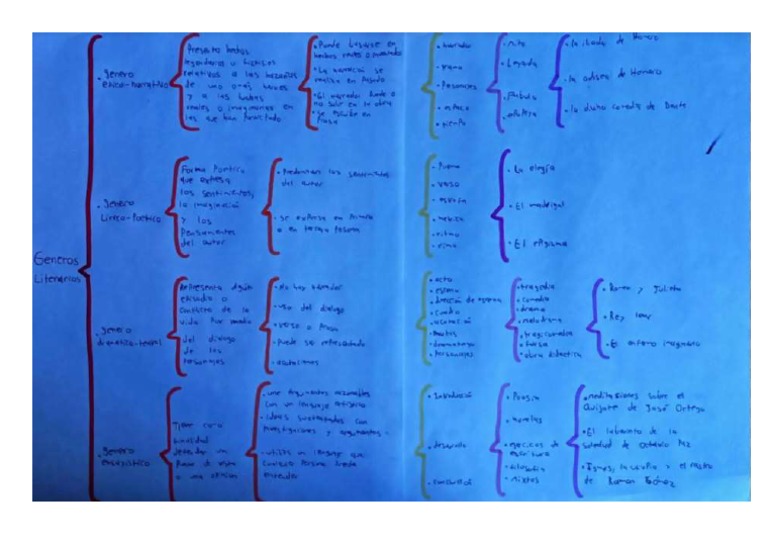 Generos
Literarios
. genero
epico-narrativo
Presenta hechos
legendarios o historicos
relativos a las hazañas
de uno o más heroes
y a las luchas
reales o imaginarias en
las que han participado
. Puede basarse en
hechos reales o inventados
. La narración se
realiza en pasado
. El narrador puede o
no salir en la obra
. se escribe en
Prosa
. narrador
. trama
. Personajes
. espacio
. tiempo
. mito
. Leyenda
. fabula
. epopeya
. la iliada de Homero
. la odisea de Homero
. la divina comedia de Dante
. genero
Lirico-Poetico
Forma Poetica
que expresa
los sentimientos,
la imaginación
y los
Pensamientos
del autor
. Predominan los sentimientos
del autor
. se expresa en Primera
o en tercera persona
. Poema
. verso
. estrofa
. metrica
. ritmo
. rima
. La elegía
. El madrigal
. El epigrama
. genero
dramatico-teatral
Representa algún
episodio o
conflicto de la
vida Por medio
del dialogo
de los
Personajes
. No hay narrador
. uso del dialogo
. verso o Prosa
. Puede ser representado
. acotaciones
. acto
. escena
. cuadro
. acotación
. Personajes
. tragedia
. comedia
. drama
. melodrama
. tragicomedia
. farsa
. obra didactica
. Romeo y Julieta
. Rey lear
. El enfermo imaginario
. genero
ensayistico
Tiene como
finalidad
defender un
Punto de vista
o una opinion
. une argumentos razonables
con un lenguaje artistico
. ideas sustentadas con
investigaciones y argumentos.
. utiliza un lenguaje que
cualquier Persona Pueda
entender
. Introducción
. desarrollo
. conclusión
. Poesia
. novelas
. ejercicios de
escritura
. filosofia
. mixtos
. meditaciones sobre el
Quijote de José Ortega
. El laberinto de la
soledad de Octavio Paz
de Ramon